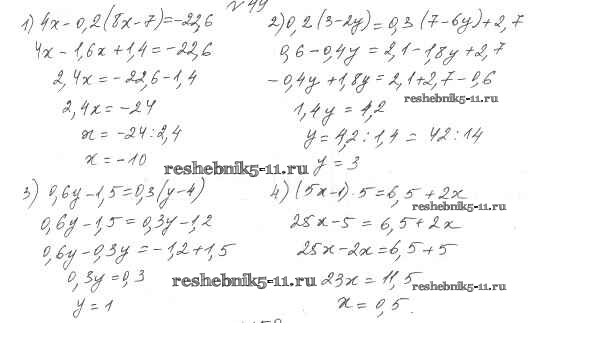 № 49
1) 4x - 0,2(8x-7) = -22,6
4x - 1,6x + 1,4 = -22,6
2,4x = -22,6 - 1,4
2,4x = -24
x = -24 : 2,4
x = -10
2) 0,2(3-2y) = 0,3(7-6y) + 2,7
0,6 - 0,4y = 2,1 - 1,8y + 2,7
-0,4y + 1,8y = 2,1 + 2,7 - 0,6
reshebnik5-11.ru
1,4y = 4,2
y = 4,2 : 1,4 = 42 : 14
y = 3
reshebnik5-11.ru
3) 0,6y - 1,5 = 0,3(y-4)
0,6y - 1,5 = 0,3y - 1,2
0,6y - 0,3y = -1,2 + 1,5
0,3y = 0,3
y = 1
reshebnik5-11.ru
4) (5x-1)·5 = 6,5 + 2x
reshebnik5-11.ru
25x - 5 = 6,5 + 2x
25x - 2x = 6,5 + 5
23x = 11,5
reshebnik5-11.ru
x = 0,5.